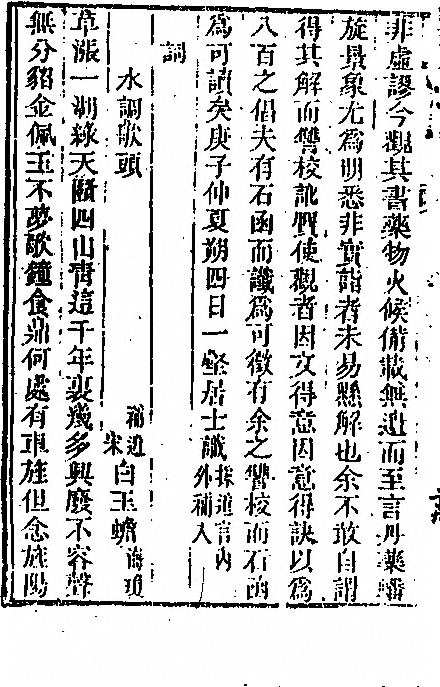 非虛謬今觀其書藥物火候備載無遺而至言丹藥蟠
旋景象尤爲明悉非實詣者未易懸解也余不敢自謂
得其解而讐校訛贋使觀者因文得意因意得訣以爲
八百之倡夫有石函而讖爲可徵有余之讐校而石函
爲可讀矣庚子仲夏朔四日一壑居士識採遺言內外補入
詞
水調歌頭
補遺宋白玉蟾海瓊
草漲一湖綠天隱四山靑這千年裏幾多興廢不容聲
無分貂金佩玉不夢歌鐘食鼎何處有車旌但念旌陽